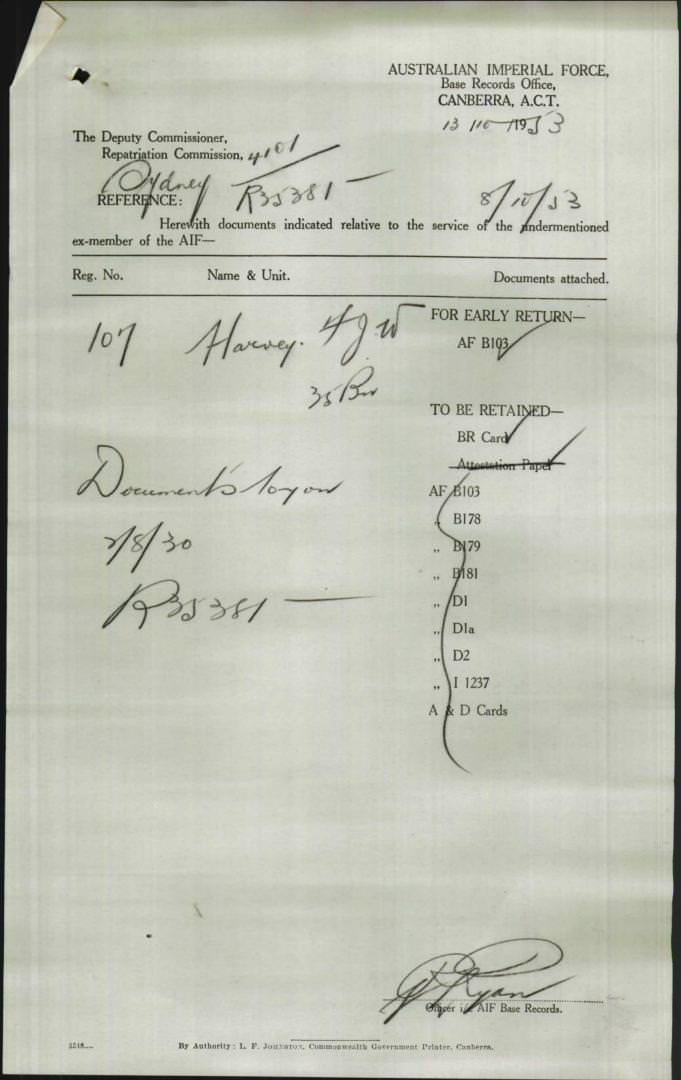 AUSTRALIAN IMPERIAL FORCE,
Base Records Office,
CANBERRA, A.C.T.
13/10/1953
The Deputy Commissioner,
Repatriation Commission, 4101
Sydney
REFERENCE: R35381 — 8/10/53
Herewith documents indicated relative to the service of the undermentioned
ex-member of the AIF—
Reg. No. Name & Unit. Documents attached.
107 Harvey. W
35 Bn
FOR EARLY RETURN—
AF B103
TO BE RETAINED—
BR Card
Attestation Paper
Documents to you
2/8/30
R35381 —
AF B103
„ B178
„ B179
„ B181
„ D1
„ D1a
„ D2
„ I 1237
A & D Cards
Ryan
Officer i/c AIF Base Records.
By Authority: L. F. JOHNSTON, Commonwealth Government Printer, Canberra.